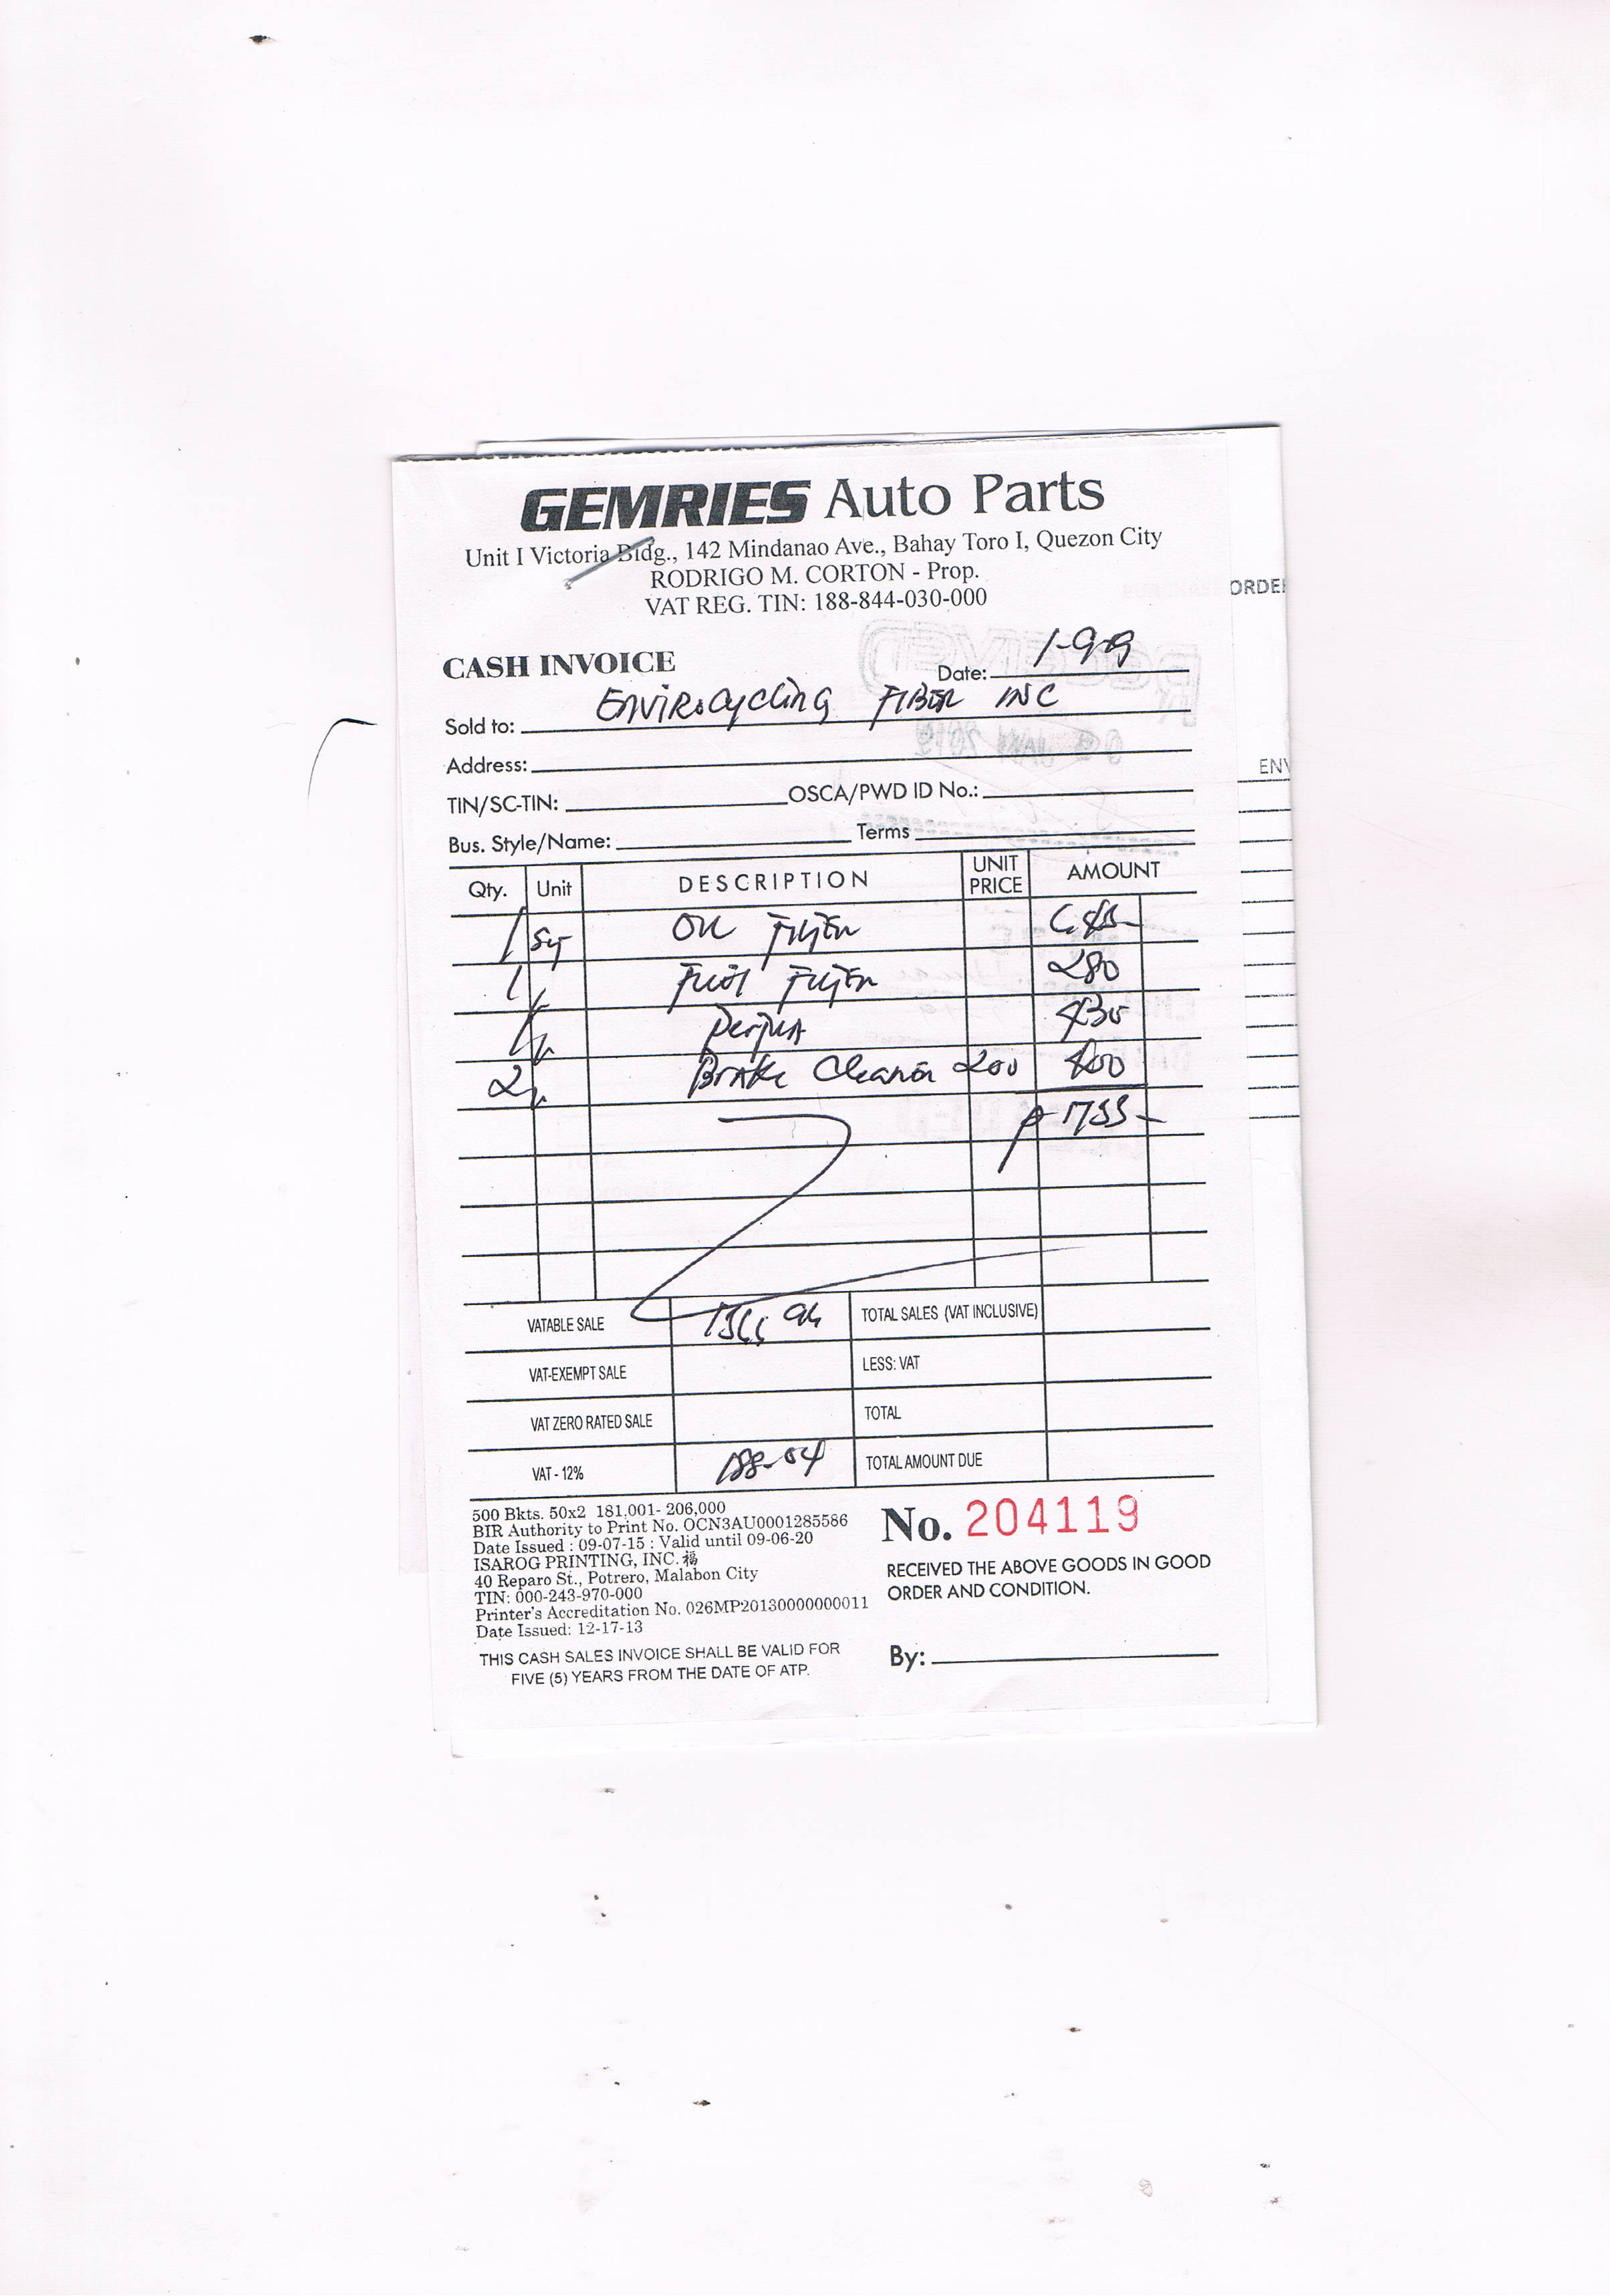 GEMRIES Auto Parts
Unit I Victoria Bldg., 142 Mindanao Ave., Bahay Toro I, Quezon City
RODRIGO M. CORTON - Prop.
VAT REG. TIN: 188-844-030-000
ORDER
CASH INVOICE
Date: 1-9-19
Sold to: Envirocycling FIBER INC
Address:
ENV
TIN/SC-TIN: OSCA/PWD ID No.:
Bus. Style/Name: Terms
Qty. Unit DESCRIPTION UNIT PRICE AMOUNT
1 Oil Filter
1 Fuel Filter 280
430
2 Brake Cleaner 200 400
P 1755-
VATABLE SALE TOTAL SALES (VAT INCLUSIVE)
VAT-EXEMPT SALE LESS: VAT
VAT ZERO RATED SALE TOTAL
VAT - 12% 188-04 TOTAL AMOUNT DUE
500 Bkts. 50x2 181,001- 206,000
BIR Authority to Print No. OCN3AU0001285586
Date Issued : 09-07-15 : Valid until 09-06-20
ISAROG PRINTING, INC. 福
40 Reparo St., Potrero, Malabon City
TIN: 000-243-970-000
Printer's Accreditation No. 026MP20130000000011
Date Issued: 12-17-13
THIS CASH SALES INVOICE SHALL BE VALID FOR
FIVE (5) YEARS FROM THE DATE OF ATP.
No. 204119
RECEIVED THE ABOVE GOODS IN GOOD
ORDER AND CONDITION.
By: